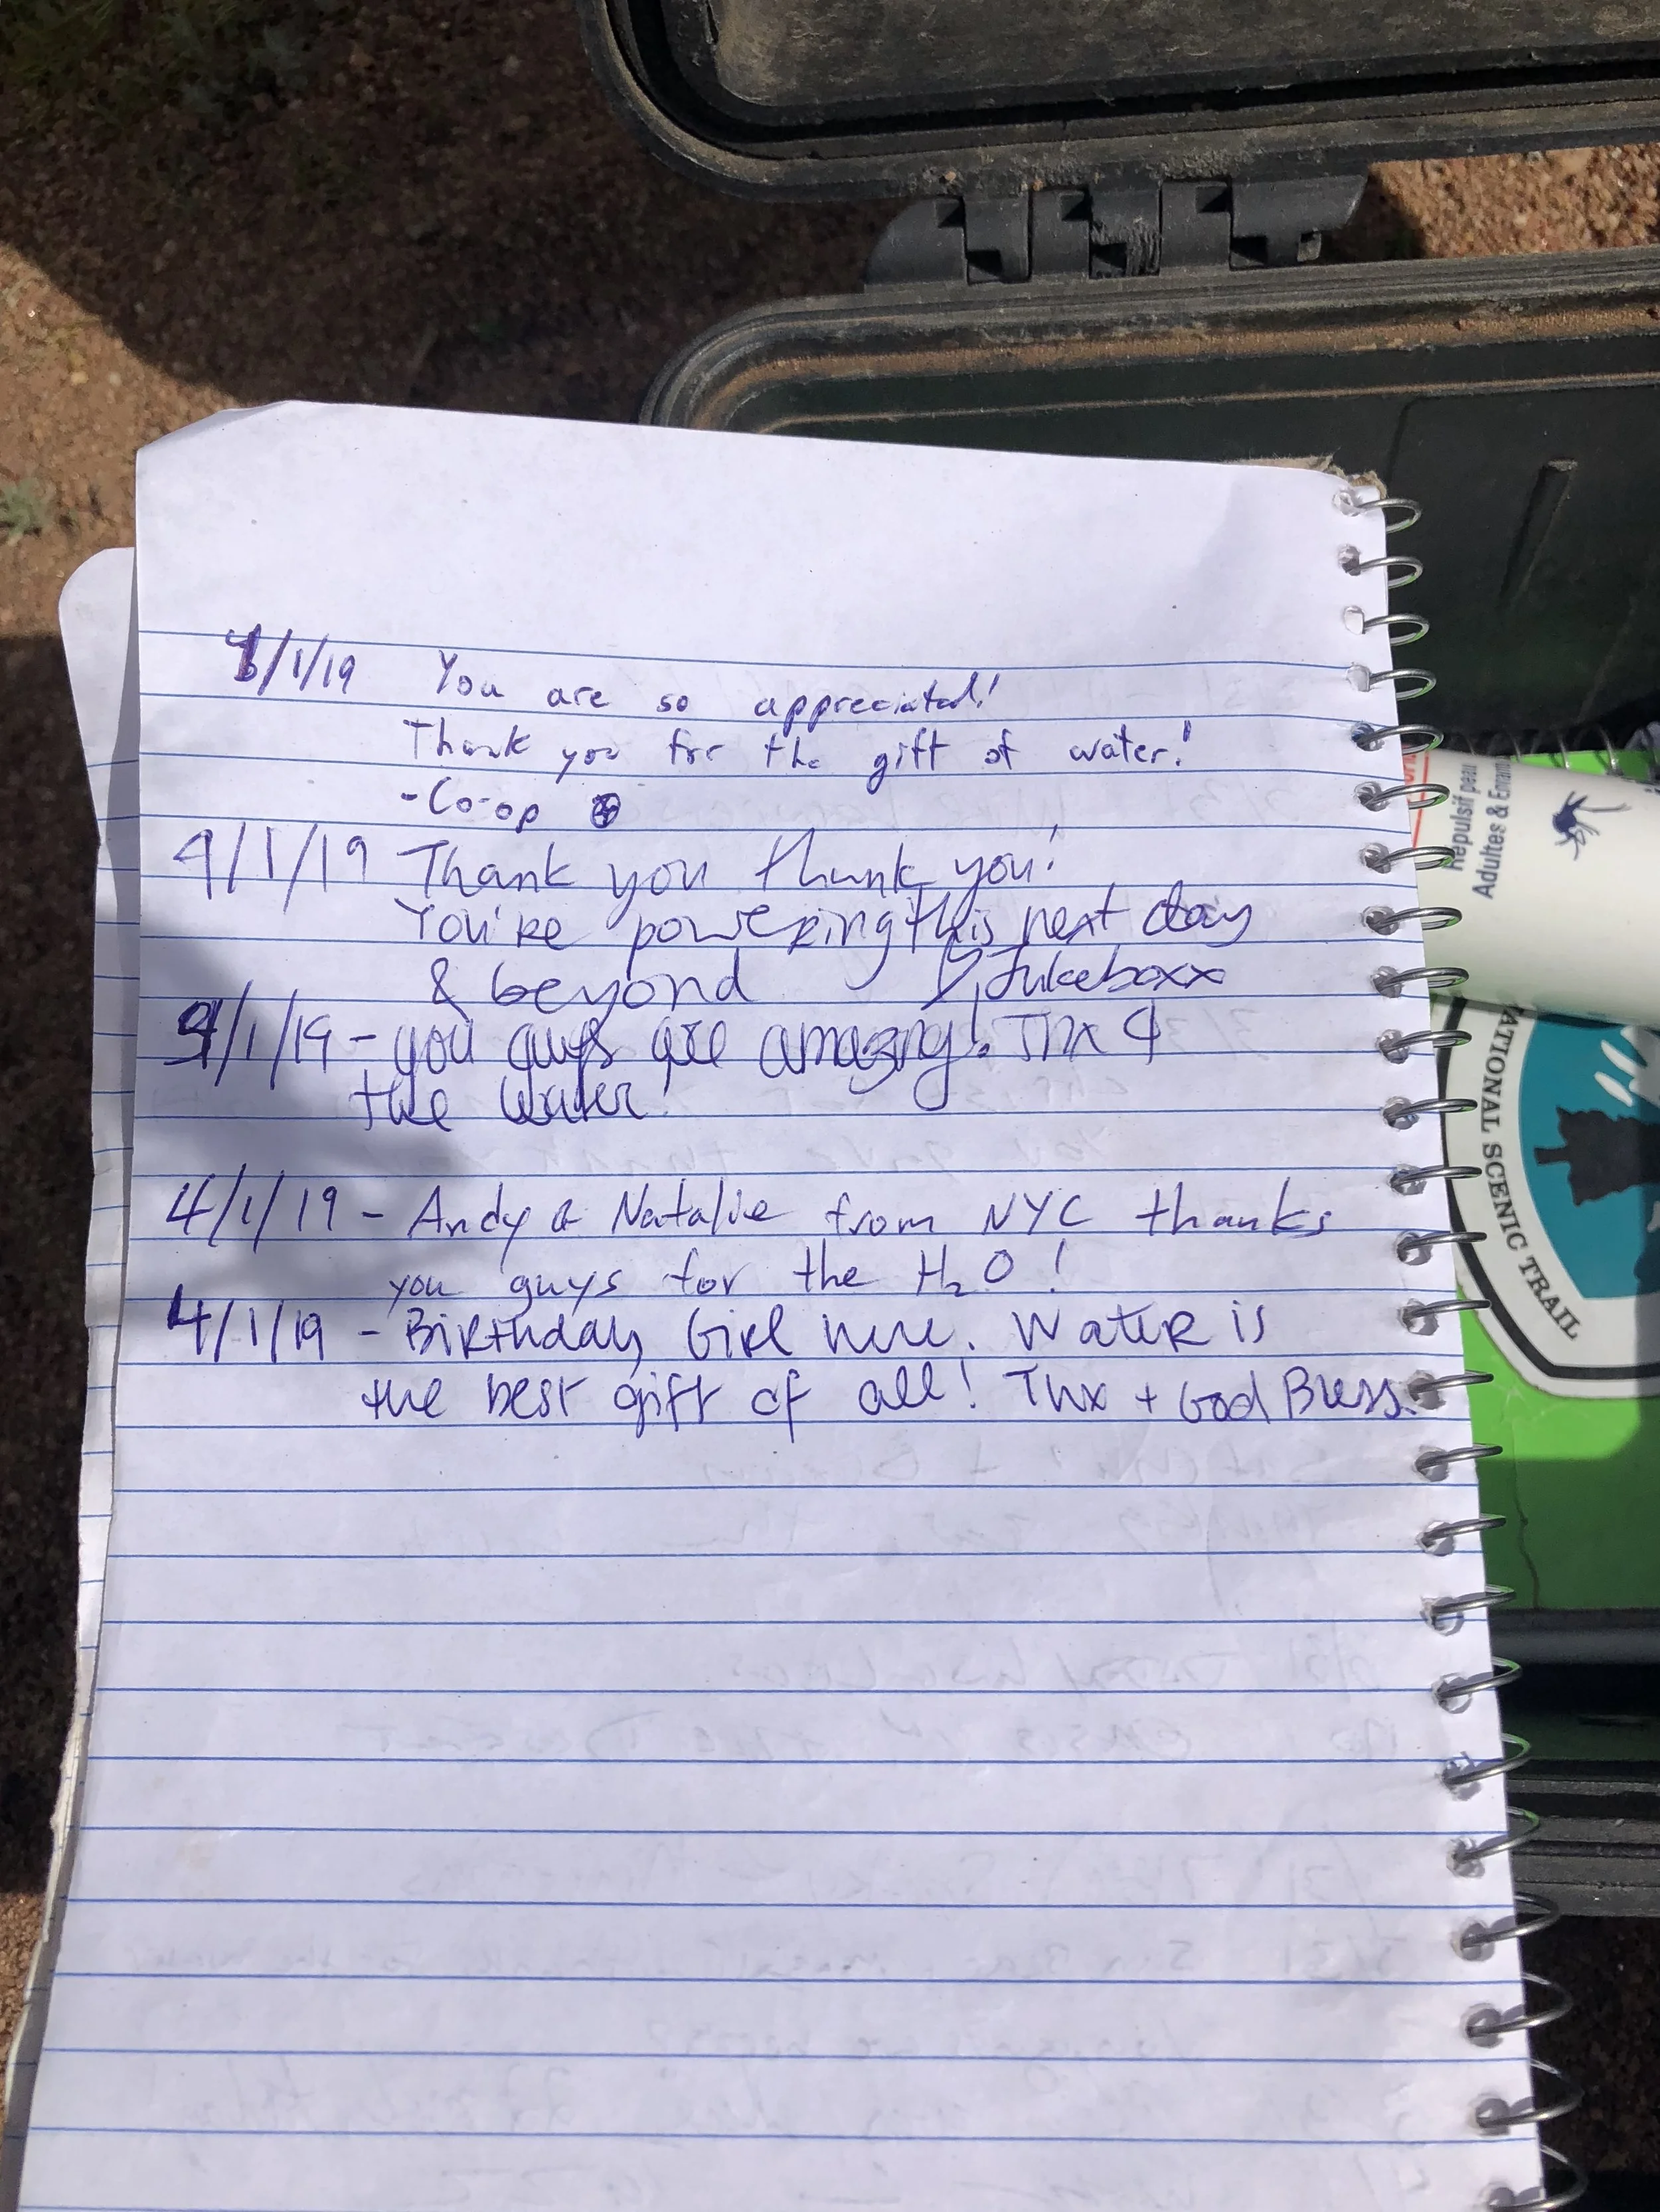 4/1/19 You are so appreciated!
Thank you for the gift of water!
-Co-op
4/1/19 Thank you thank you!
You're powering this next day
& beyond Jukeboxx
4/1/19 - you guys are amazing! Thx 4
the water!
4/1/19 - Andy & Natalie from NYC thanks
you guys for the H₂O!
4/1/19 - Birthday Girl here. Water is
the best gift of all! Thx + God Bless.
Repulsif peau
Adultes &
NATIONAL SCENIC TRAIL